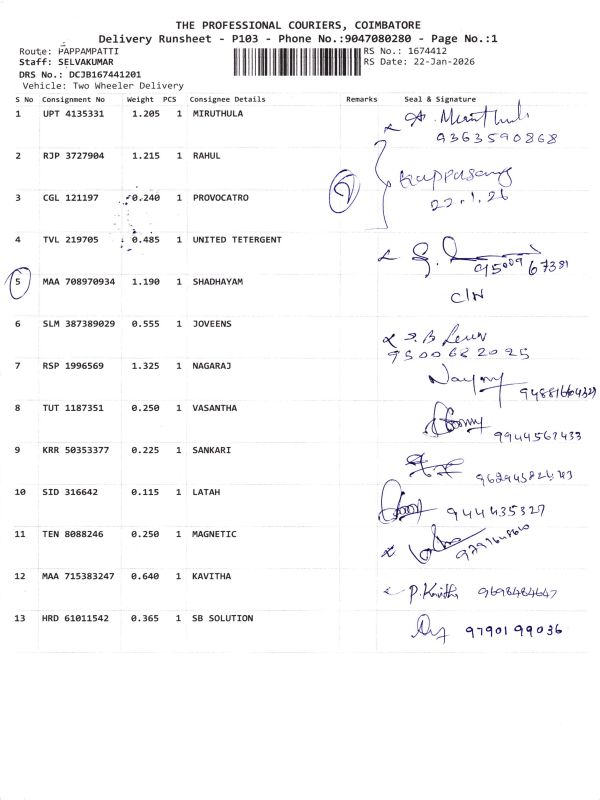 THE PROFESSIONAL COURIERS, COIMBATORE
Delivery Runsheet - P103 - Phone No.:9047080280 - Page No.:1
Route: PAPPAMPATTI
RS No.: 1674412
Staff: SELVAKUMAR
RS Date: 22-Jan-2026
DRS No.: DCJB167441201
Vehicle: Two Wheeler Delivery
S No Consignment No Weight PCS Consignee Details Remarks Seal & Signature
1 UPT 4135331 1.205 1 MIRUTHULA
9363590868
2 RJP 3727904 1.215 1 RAHUL
3 CGL 121197 0.240 1 PROVOCATRO 2
22.1.26
4 TVL 219705 0.485 1 UNITED TETERGENT
95009 67381
5 MAA 708970934 1.190 1 SHADHAYAM
C/N
6 SLM 387389029 0.555 1 JOVEENS
9500622025
7 RSP 1996569 1.325 1 NAGARAJ
8 TUT 1187351 0.250 1 VASANTHA
9944562433
9 KRR 50353377 0.225 1 SANKARI
10 SID 316642 0.115 1 LATAH
944435327
11 TEN 8088246 0.250 1 MAGNETIC
12 MAA 715383247 0.640 1 KAVITHA P. Kavitha 9698484647
13 HRD 61011542 0.365 1 SB SOLUTION 9790199036